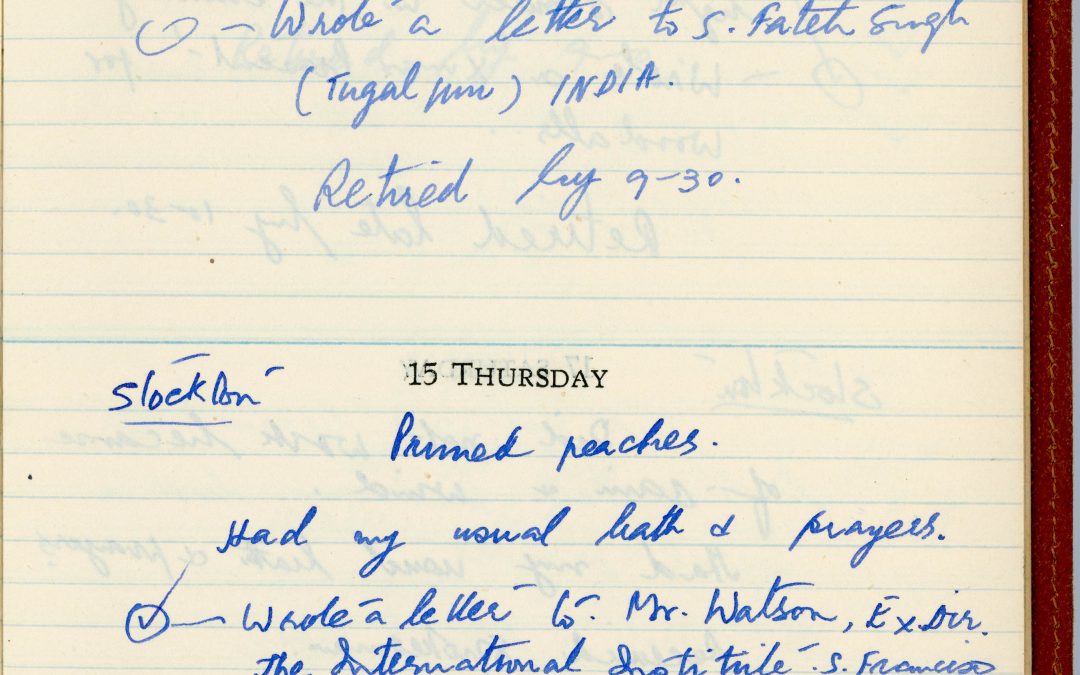 - Wrote a letter to S. Fateh Singh
(Tugalpur) INDIA.
Retired by 9-30.
15 THURSDAY
Stockton
Pruned peaches.
Had my usual bath & prayers.
- Wrote a letter to Mr. Watson, Ex. Dir.
the International Institute S. Francisco